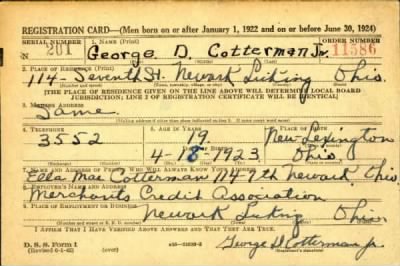 REGISTRATION CARD—(Men born on or after January 1, 1922 and on or before June 30, 1924)
SERIAL NUMBER 1. NAME (Print) ORDER NUMBER
N 201 George D. Cotterman Jr. 11586
2. PLACE OF RESIDENCE (Print)
114 - Seventh St. Newark Licking Ohio.
[THE PLACE OF RESIDENCE GIVEN ON THE LINE ABOVE WILL DETERMINE LOCAL BOARD
JURISDICTION; LINE 2 OF REGISTRATION CERTIFICATE WILL BE IDENTICAL]
3. MAILING ADDRESS
Same.
4. TELEPHONE 5. AGE IN YEARS 6. PLACE OF BIRTH
3552 19 New Lexington
4-18-1923 Ohio
7. NAME AND ADDRESS OF PERSON WHO WILL ALWAYS KNOW YOUR ADDRESS
Mae Cotterman 114-7th Newark Ohio
8. EMPLOYER'S NAME AND ADDRESS
Merchants Credit Association
9. PLACE OF EMPLOYMENT OR BUSINESS
Newark Licking Ohio.
I AFFIRM THAT I HAVE VERIFIED ABOVE ANSWERS AND THAT THEY ARE TRUE.
D. S. S. Form 1 George D Cotterman Jr.
(Revised 6-1-42) (over)